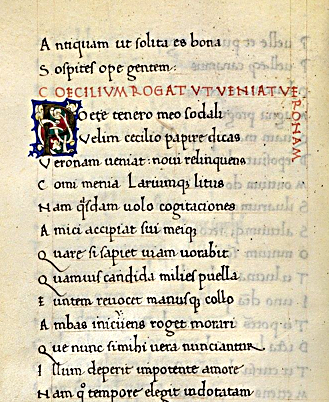 A ntiquam ut solita es bona
S ospites ope gentem:
C OECILIVM ROGAT VT VENIAT VERONAM
P Oete tenero meo sodali
V elim cecilio papire dicas
V eronam ueniat: noui relinquens
C omi menia Lariumq; litus
N am q̃sdam uolo cogitaciones
A mici accipiat sui meiq;
Q uare si sapiet uiam uorabit
Q uamuis candida milies puella
E untem reuocet manusq; collo
A mbas iniciens roget morari
Q ue nunc si mihi uera nunciantur
I llum deperit impotente amore
N am q̊ tempore elegit indotatam